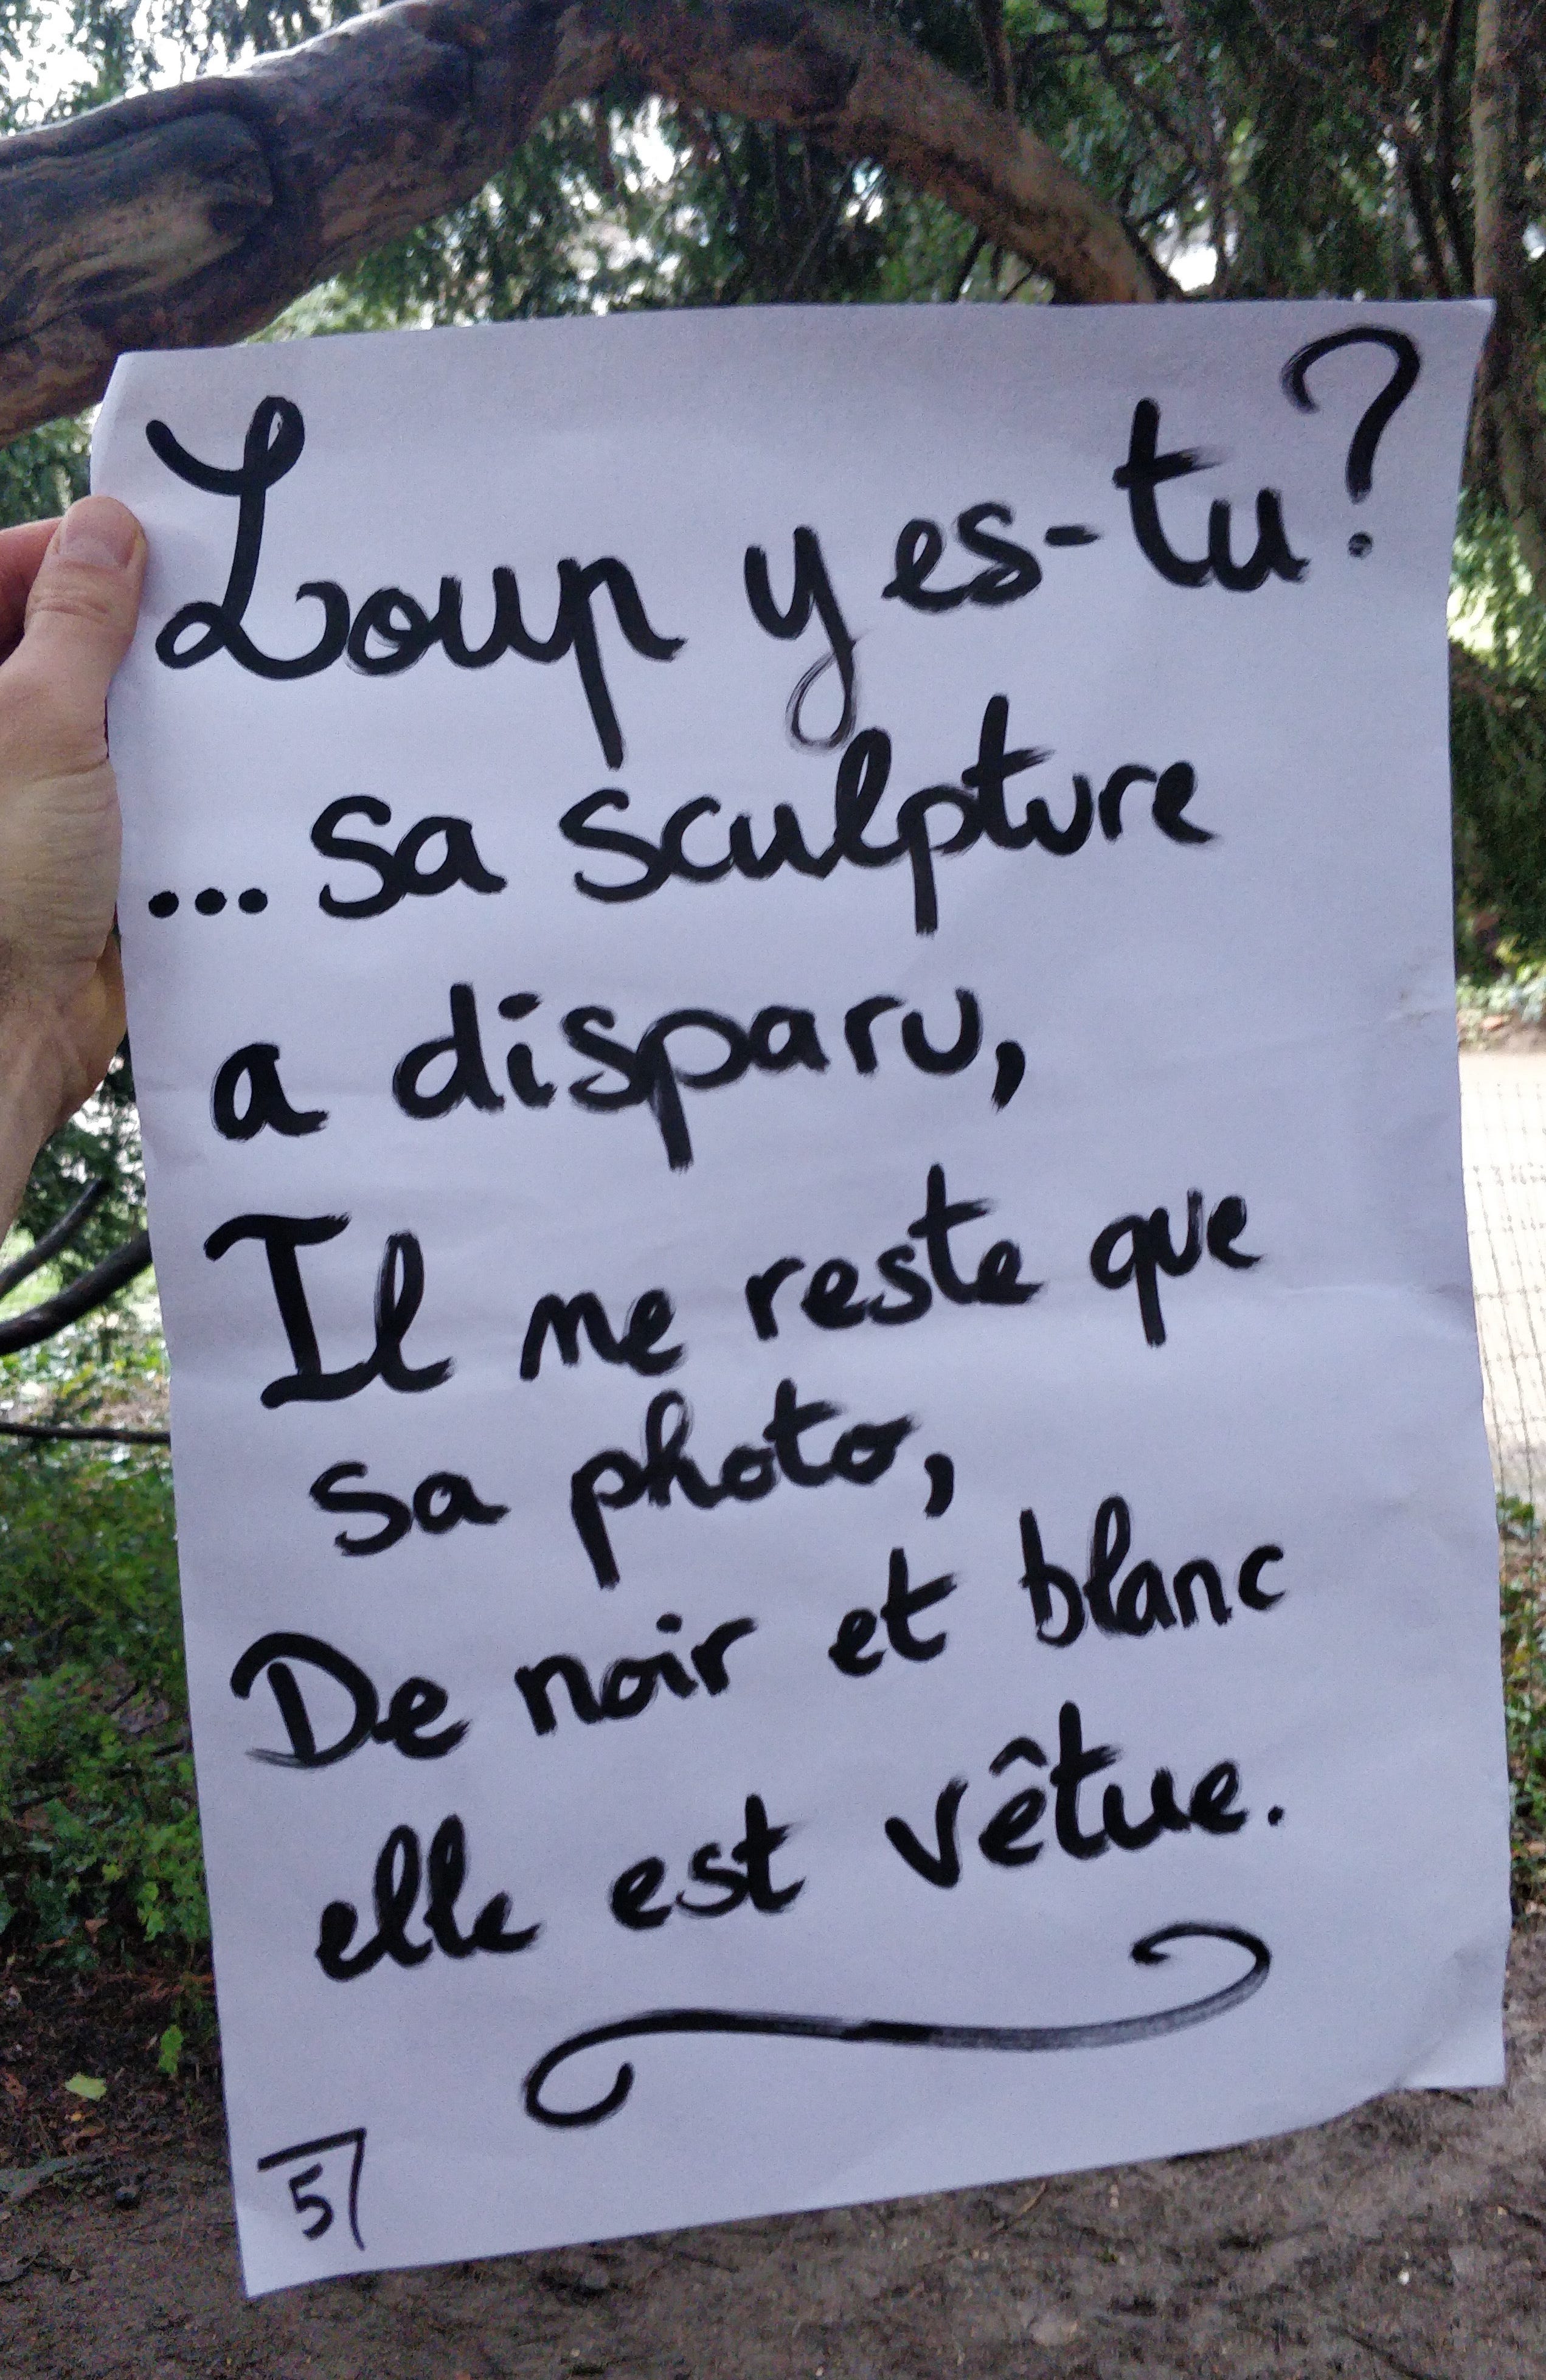 Loup y es-tu?
... sa sculpture
a disparu,
Il me reste que
sa photo,
De noir et blanc
elle est vêtue.
5